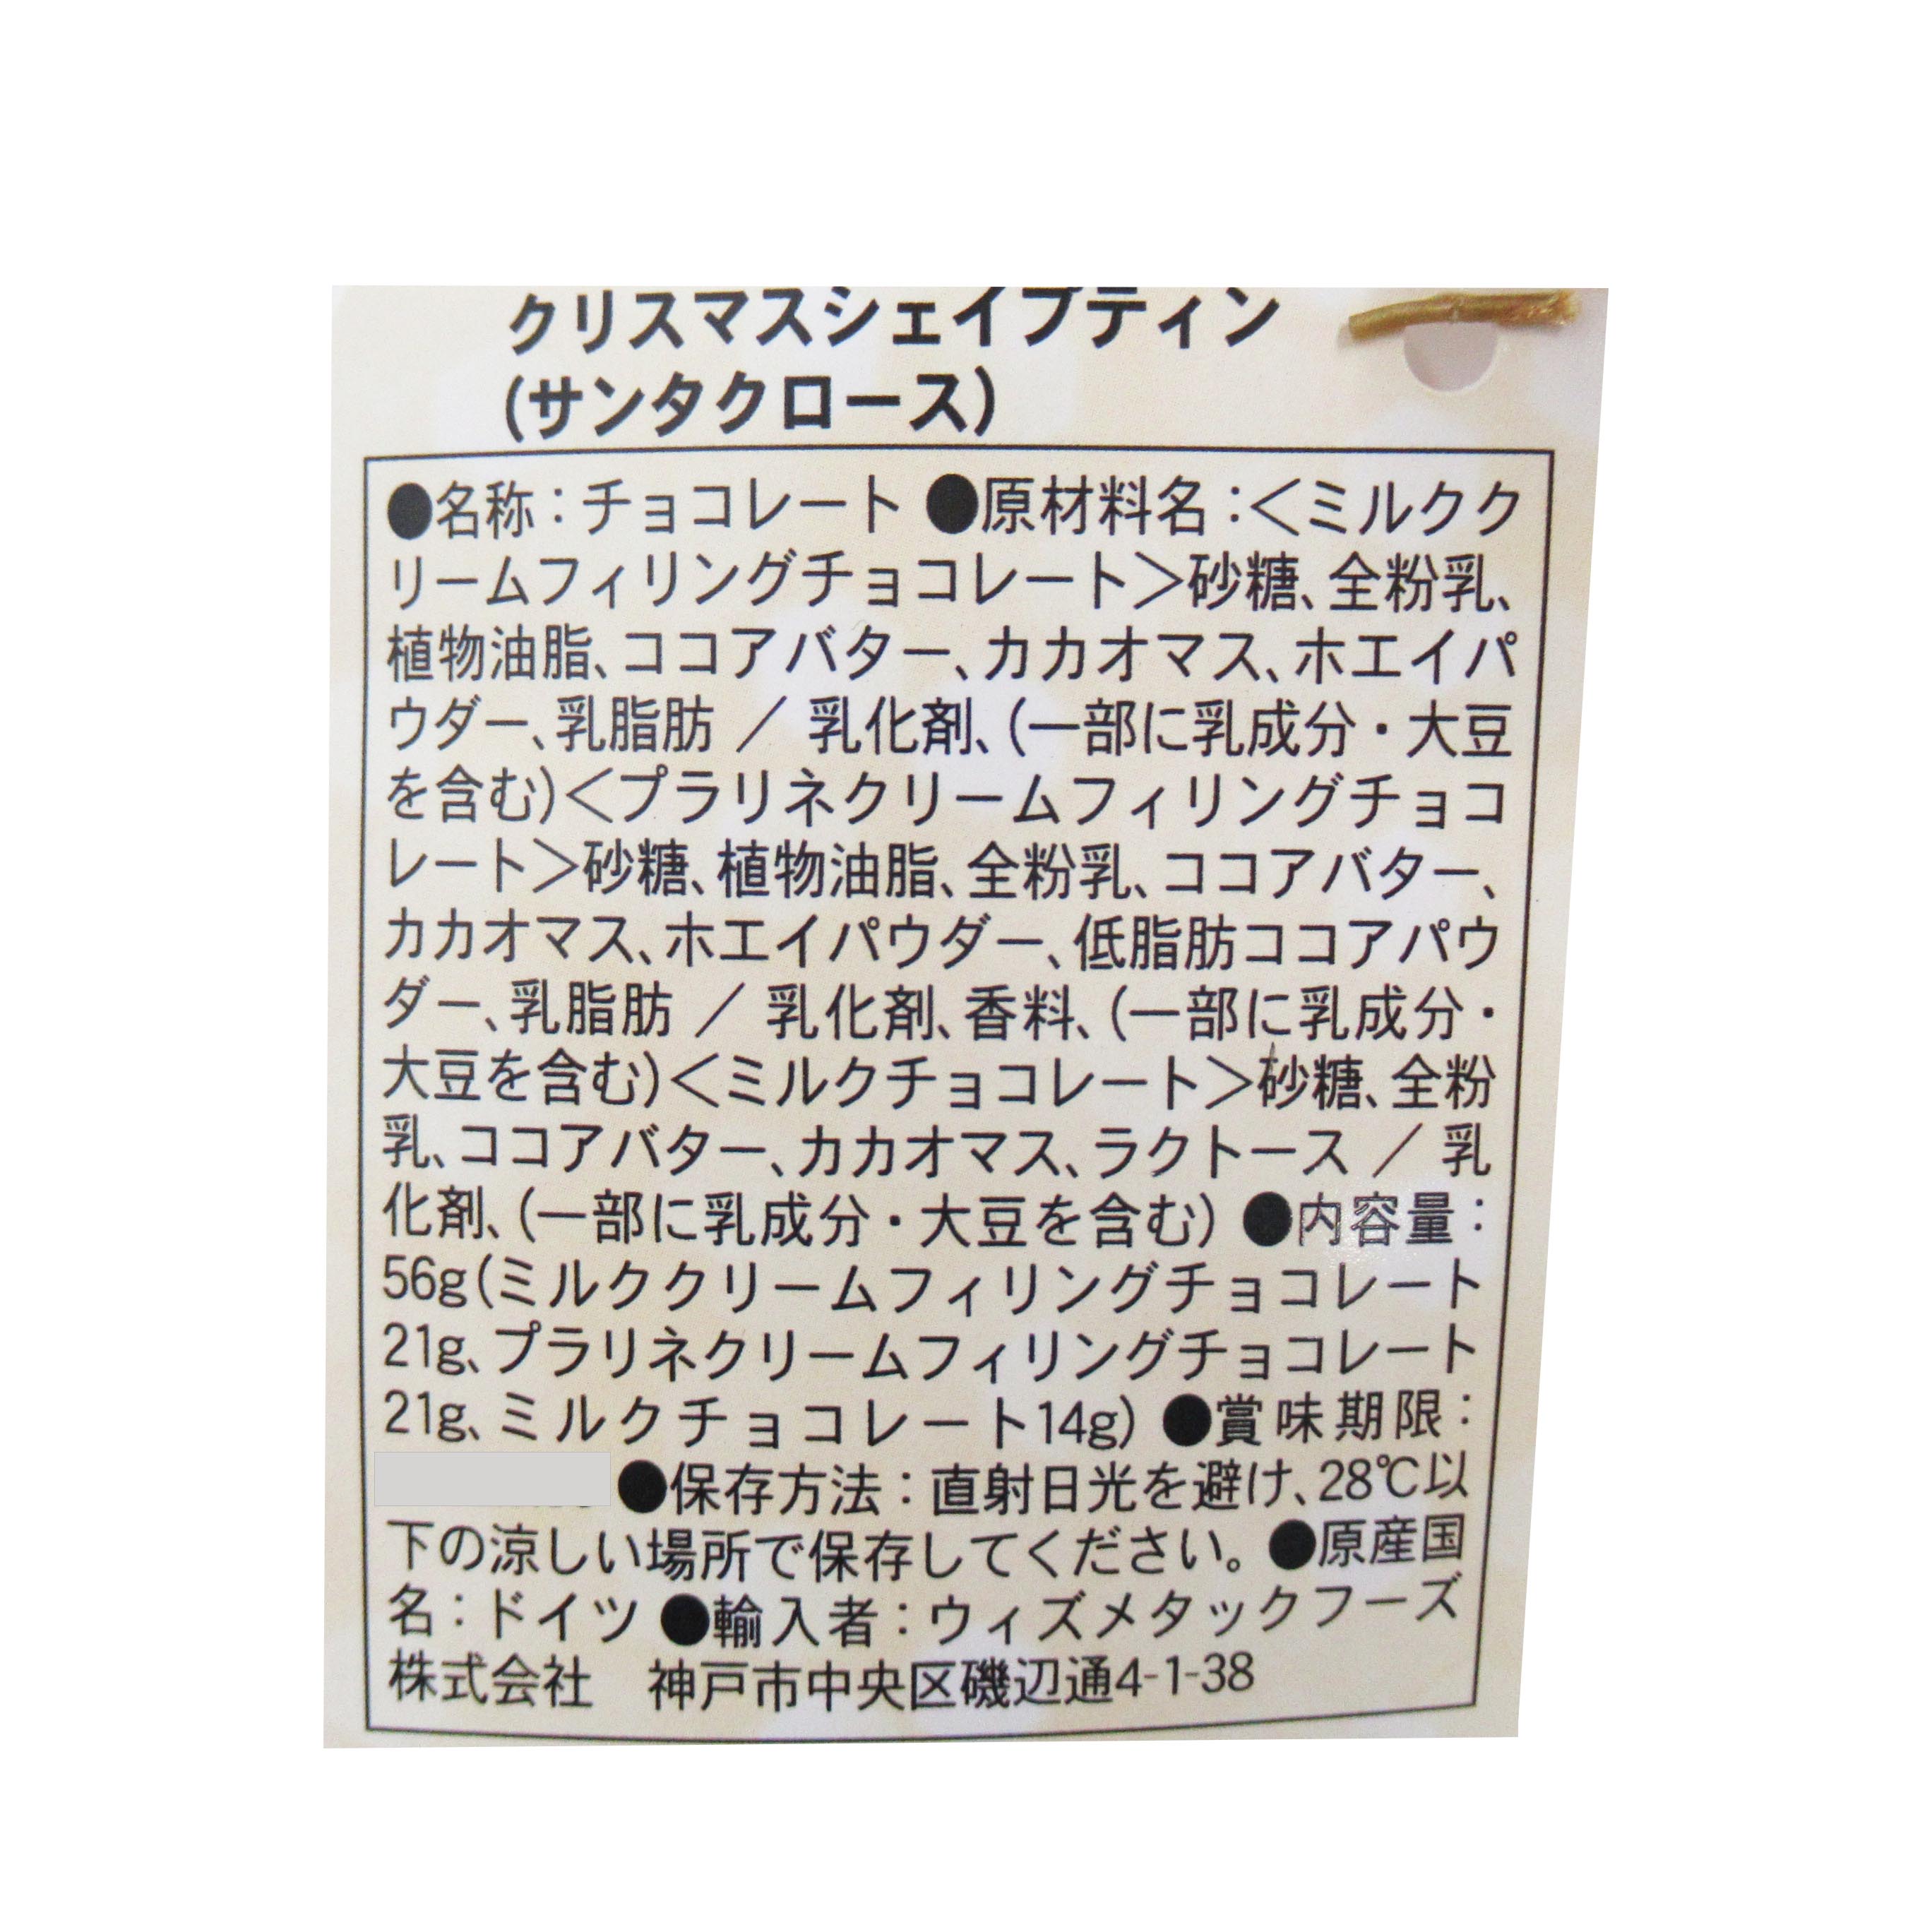 クリスマスシェイプティン
(サンタクロース)
●名称：チョコレート ●原材料名：＜ミルクク
リームフィリングチョコレート＞砂糖、全粉乳、
植物油脂、ココアバター、カカオマス、ホエイパ
ウダー、乳脂肪 ／ 乳化剤、(一部に乳成分・大豆
を含む)＜プラリネクリームフィリングチョコ
レート＞砂糖、植物油脂、全粉乳、ココアバター、
カカオマス、ホエイパウダー、低脂肪ココアパウ
ダー、乳脂肪 ／ 乳化剤、香料、(一部に乳成分・
大豆を含む)＜ミルクチョコレート＞砂糖、全粉
乳、ココアバター、カカオマス、ラクトース ／ 乳
化剤、(一部に乳成分・大豆を含む) ●内容量：
56g(ミルククリームフィリングチョコレート
21g、プラリネクリームフィリングチョコレート
21g、ミルクチョコレート14g) ●賞味期限：
●保存方法：直射日光を避け、28℃以
下の涼しい場所で保存してください。 ●原産国
名：ドイツ ●輸入者：ウィズメタックフーズ
株式会社　神戸市中央区磯辺通4-1-38